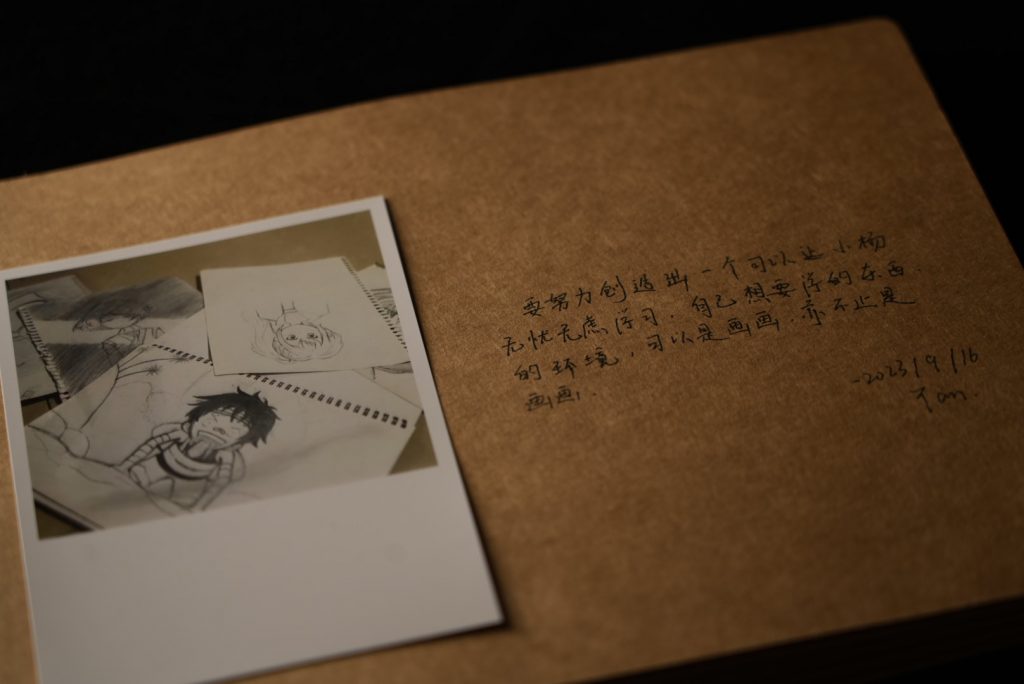 要努力创造出一个可以让小杨
无忧无虑学习,自己想要学的东西.
的环境,可以是画画,亦不止是
画画,.
-2023/9/16
Tan.